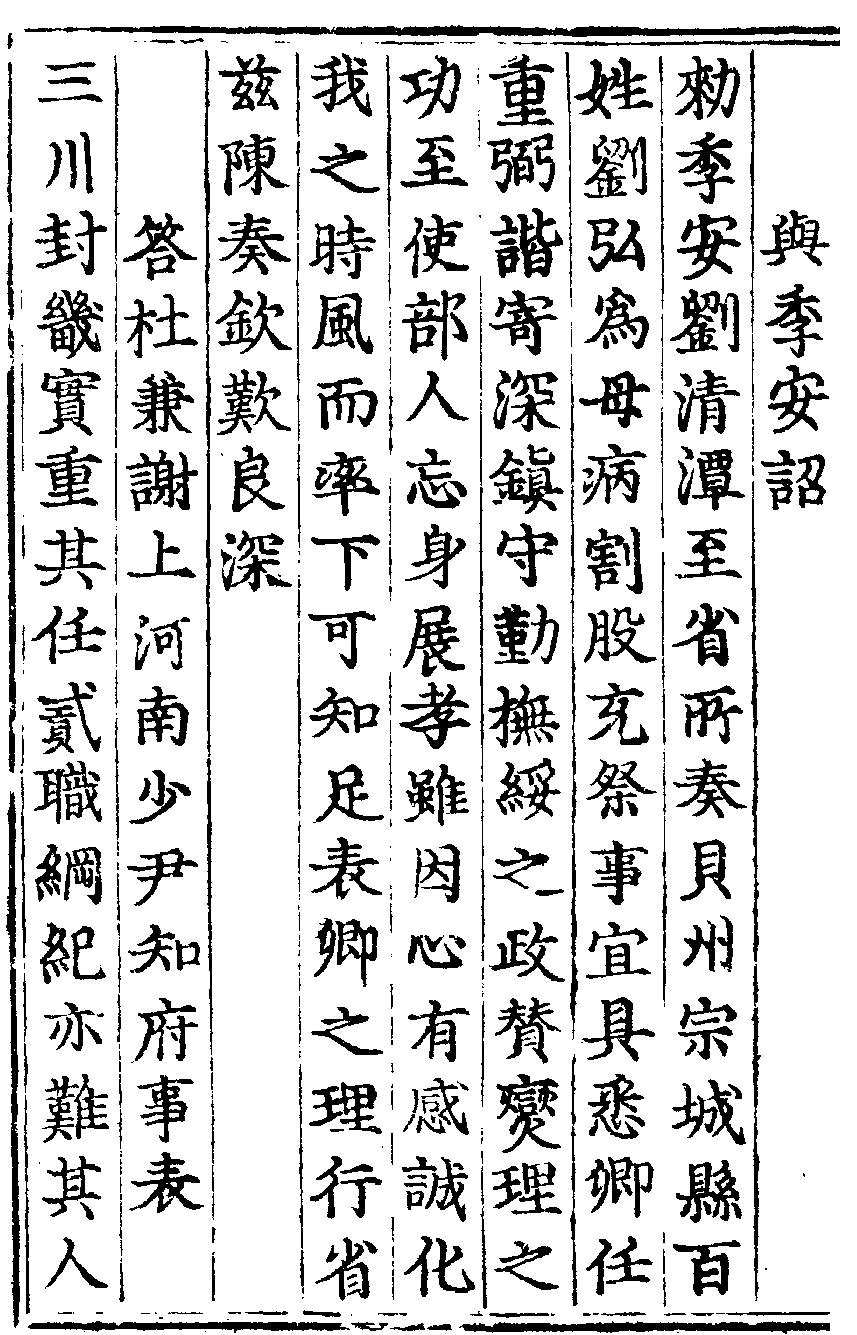 與季安詔
勑季安劉清潭至省所奏貝州宗城縣百
姓劉弘爲母病割股充祭事宜具悉卿任
重弼諧寄深鎮守勤撫綏之政賛燮理之
功至使部人忘身展孝雖因心有感誠化
我之時風而率下可知足表卿之理行省
兹陳奏欽歎良深
答杜兼謝上河南少尹知府事表
三川封畿實重其任貳職綱紀亦難其人